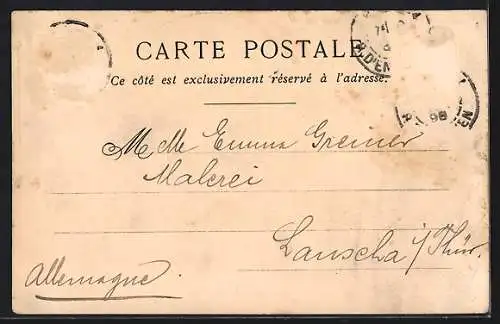 CARTE POSTALE
Ce côté est exclusivement réservé à l'adresse.
Melle Emma Greiner
Malerei
Lauscha i/Thür.
Allemagne.